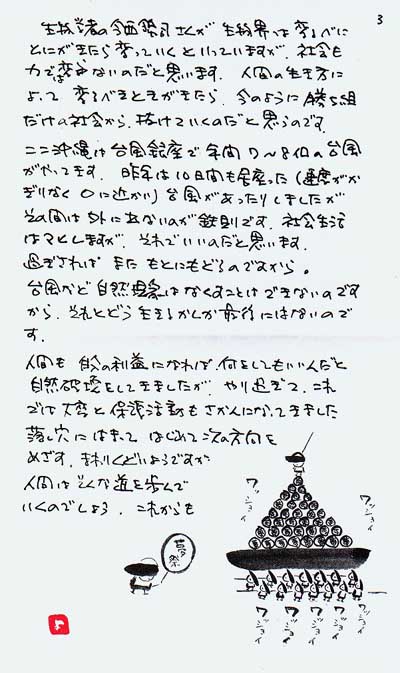 3
生物学者の今西錦司さんが 生物界は変るべに
とにがきたら変っていくといっていますが、社会も
力で変らないのだと思います。人間の生き方に
よって 変るべきときがきたら、今のように勝ち組
だけの社会から、抜けていくのだと思うのです。
ここ沖縄は台風銀座で年間7〜8個の台風
がやってきます。昨年は10日間も居座った(速度がか
ぎりなく0に近かい)台風があったりしましたが
その間は外に出ないのが鉄則です。社会生活
はマヒしますが、それでいいのだと思います。
過ぎされば またもとにもどるのですから。
台風など自然現象はなくすことはできないのです
から、それとどう生きるかしか最後にはないので
す。
人間も自分の利益になれば、何をしてもいいんだと
自然破壊をしてきましたが、やり過ぎて、これ
では大変と保護活動もさかんになってきました
落し穴にはまって はじめて次の方向を
めざす。まわりくどいようですが
人間はそんな道を歩んで
いくのでしょう。これからも
夢祭
ワッショイ
ワッショイ
ワッショイ
ワッショイ
ワッショイ
ワッショイ
ワッショイ